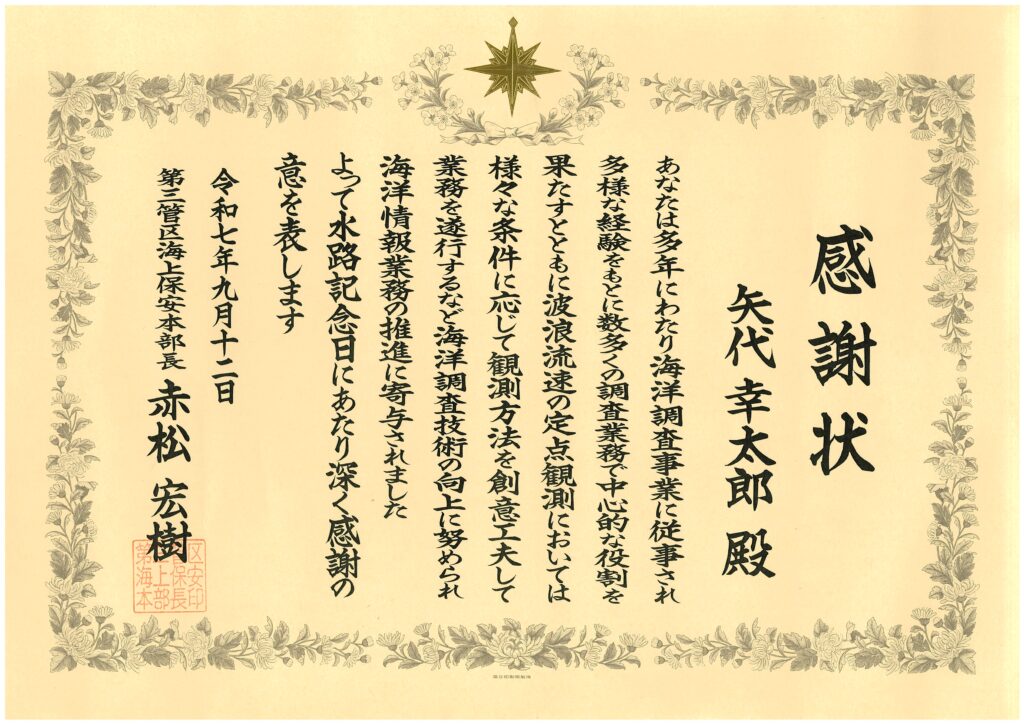 感謝状
矢代 幸太郎 殿
あなたは多年にわたり海洋調査事業に従事され
多様な経験をもとに数多くの調査業務で中心的な役割を
果たすとともに波浪流速の定点観測においては
様々な条件に応じて観測方法を創意工夫して
業務を遂行するなど海洋調査技術の向上に努められ
海洋情報業務の推進に寄与されました
よって水路記念日にあたり深く感謝の
意を表します
令和七年九月十二日
第三管区海上保安本部長 赤松 宏樹
区安印
保長
上部
第海本